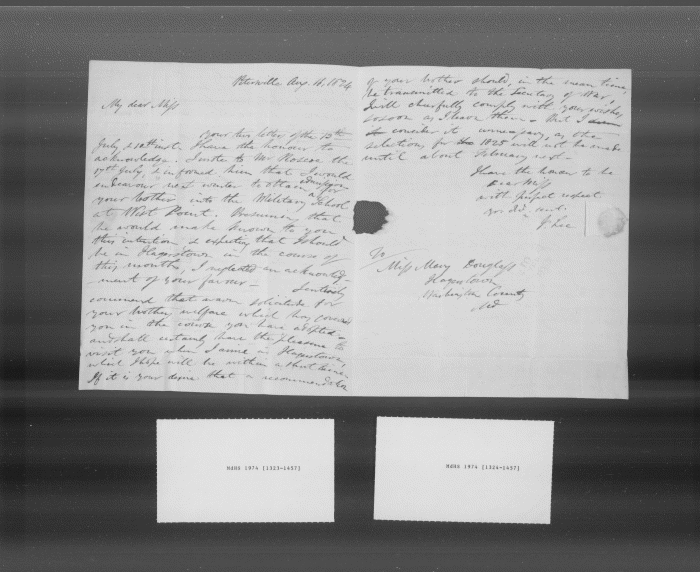 Petersville Aug. 11. 1824
My dear Miss
your two letters of the 13th
July & 10th inst. I have the honour to
acknowledge. I wrote to Mr Roscoe the
17th July, & informed him that I would
endeavour next winter to attain admission for
your brother into the Military School
at West Point. Presuming that
he would make known to you
this intention & expecting that I should
be in Hagerstown in the course of
this month, I neglected an acknowledg-
ment of your favour — I entirely
commend that warm solicitude for
your brothers welfare which has
you in the course you have adopted —
and shall certainly have the pleasure to
visit you when I arrive in Hagerstown,
which I hope will be within a short time.
If it is your desire that a recommendation
of your brother should, in the mean time,
be transmitted to the Secretary of War,
I will chearfully comply with your wishes,
so soon as I learn them. But I
consider it unnecessary, as the
selections for 1825 will not be made
until about February next —
I have the honor to be
Dear Miss
with perfect respect
yr. obt. servt.
J Lee
To
Miss Mary Douglass
Hagerstown
Washington County
Md
MdHR 1974 [1323-1457]
MdHR 1974 [1324-1457]